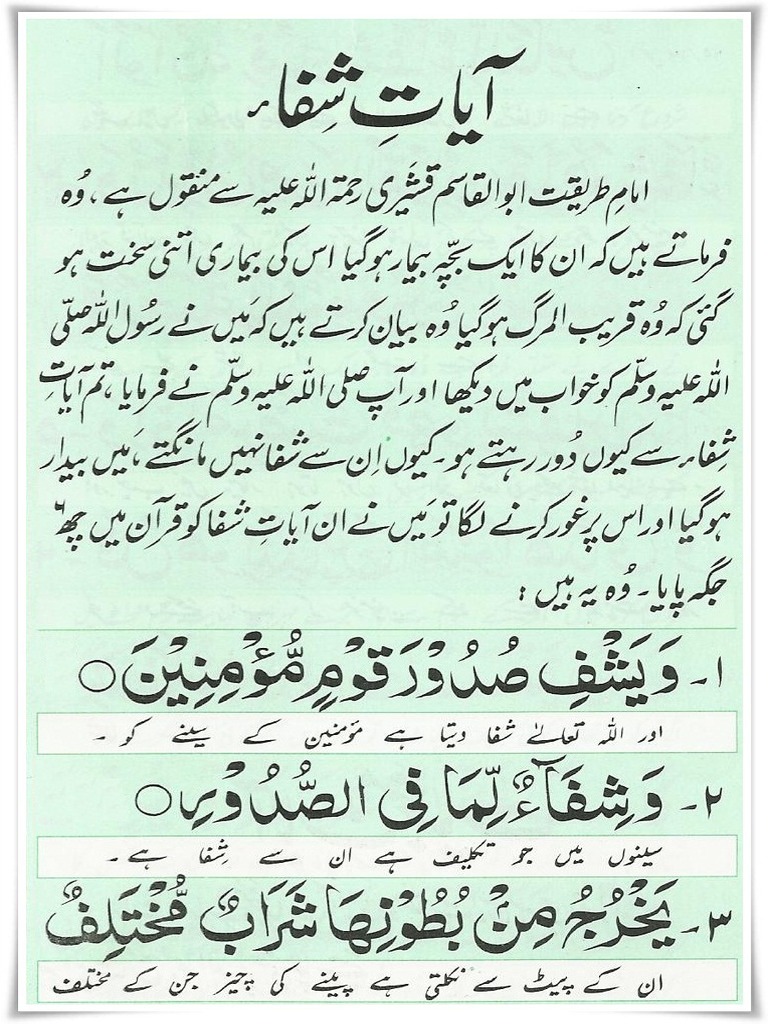 آیاتِ شِفاء
امامِ طریقت ابوالقاسم قشَیری رحمۃ اللہ علیہ سے منقول ہے، وُہ
فرماتے ہیں کہ ان کا ایک بچّہ بیمار ہوگیا اس کی بیماری اتنی سخت ہو
گئی کہ وُہ قریب المرگ ہوگیا وُہ بیان کرتے ہیں کہ مَیں نے رسُول اللہ صلّی
اللہ علیہ وسلّم کو خواب میں دیکھا اور آپ صلی اللہ علیہ وسلّم نے فرمایا، تم آیاتِ
شِفاء سے کیوں دُور رہتے ہو۔ کیوں اِن سے شفا نہیں مانگتے، مَیں بیدار
ہوگیا اور اس پر غور کرنے لگا تو مَیں نے ان آیاتِ شفا کو قرآن میں چھ۶
جگہ پایا۔ وُہ یہ ہیں:
۱۔ وَيَشْفِ صُدُوْرَ قَوْمٍ مُّؤْمِنِيْنَ ○
اور اللہ تعالےٰ شفا دیتا ہے مؤمنین کے سینے کو ۔
۲۔ وَشِفَآءٌ لِّمَا فِى الصُّدُوْرِ ○
سینوں میں جو تکلیف ہے ان سے شِفا ہے ۔
۳۔ يَخْرُجُ مِنْۢ بُطُوْنِهَا شَرَابٌ مُّخْتَلِفٌ
ان کے پیٹ سے نکلتی ہے پینے کی چیز جن کے مختلف